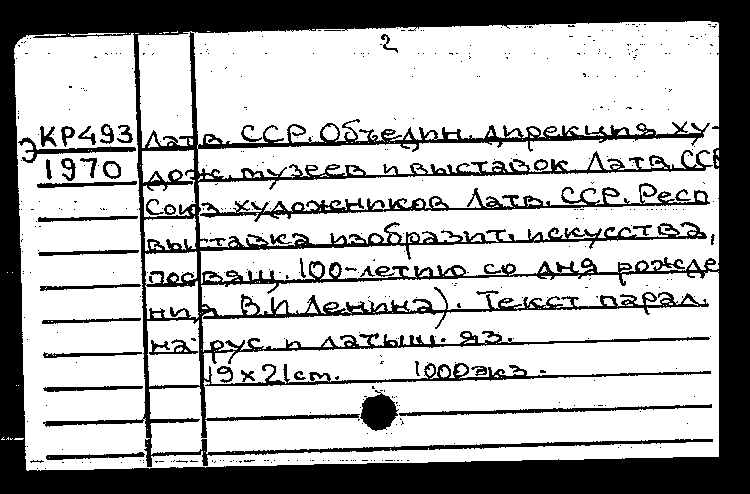 2
Э КР493 Латв. ССР. Объедин. дирекция ху-
1970 дож. музеев и выставок Латв. ССР
Союз художников Латв. ССР. Респ
выставка изобразит. искусства,
посвящ. 100-летию со дня рожде
ния В.И.Ленина). Текст парал.
на рус. и латыш. яз.
19х21cm. 1000экз.